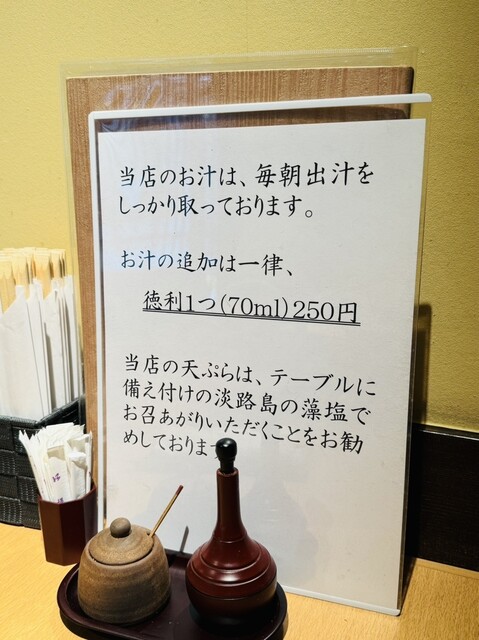 当店のお汁は、毎朝出汁を
しっかり取っております。
お汁の追加は一律、
徳利1つ(70ml)250円
当店の天ぷらは、テーブルに
備え付けの淡路島の藻塩で
お召あがりいただくことをお勧
めしております